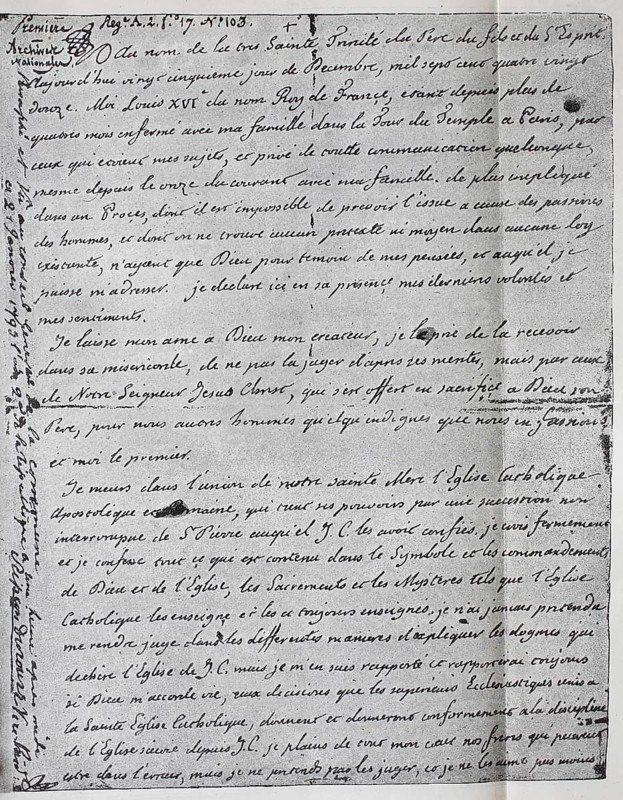 Première Regre A. 2. fo 17. No 103.
Archives
Nationales
Au nom de la tres Sainte Trinité du Pere du fils et du St Esprit.
aujourd'hui vingt cinquieme jour de Decembre, mil sept cent quatre vingt
douze. Moi Louis XVIe du nom Roy de France, etant depuis plus de
quatres mois enfermé avec ma famille dans la Tour du Temple a Paris, par
ceux qui etoient mes sujets, et privé de toutte communication quelconque,
mesme depuis le onze du courant avec ma famille. de plus impliqué
dans un Procès, dont il est impossible de prevoir l'issue a cause des passions
des hommes, et dont on ne trouve aucun pretexte ni moyen dans aucune loy
existante, n'ayant que Dieu pour temoin de mes pensées, et auquel je
puisse m'adresser. je declare ici en sa presence mes dernieres volontés et
mes sentiments.
Je laisse mon ame a Dieu mon createur, je le prie de la recevoir
dans sa misericorde, de ne pas la juger d'apres ses merites, mais par ceux
de Notre Seigneur Jesus Christ, qui s'est offert en sacrifice a Dieu son
Pere, pour nous autres hommes quelqu'indignes que nous en fussions
et moi le premier.
Je meurs dans l'union de nostre sainte Mere l'Eglise Catholique
Apostolique et Romaine, qui tient ses pouvoirs par une succession non
interrompue de St Pierre auquel J. C. les avoit confiés. je crois fermement
et je confesse tout ce qui est contenu dans le Symbole et les commandements
de Dieu et de l'Eglise, les Sacrements et les Mysteres tels que l'Eglise
Catholique les enseigne et les a toujours enseignés. je n'ai jamais pretendu
me rendre juge dans les differentes manieres d'expliquer les dogmes qui
dechire l'Eglise de J. C. mais je m'en suis rapporté et rapporterai toujours
si Dieu m'accorde vie, aux decisions que les superieurs Ecclesiastiques unis a
la Sainte Eglise Catholique, donnent et donneront conformement a la discipline
de l'Eglise suivie depuis J. C. je plains de tout mon cœur nos freres qui peuvent
estre dans l'erreur, mais je ne pretends pas les juger, et je ne les aime pas moins